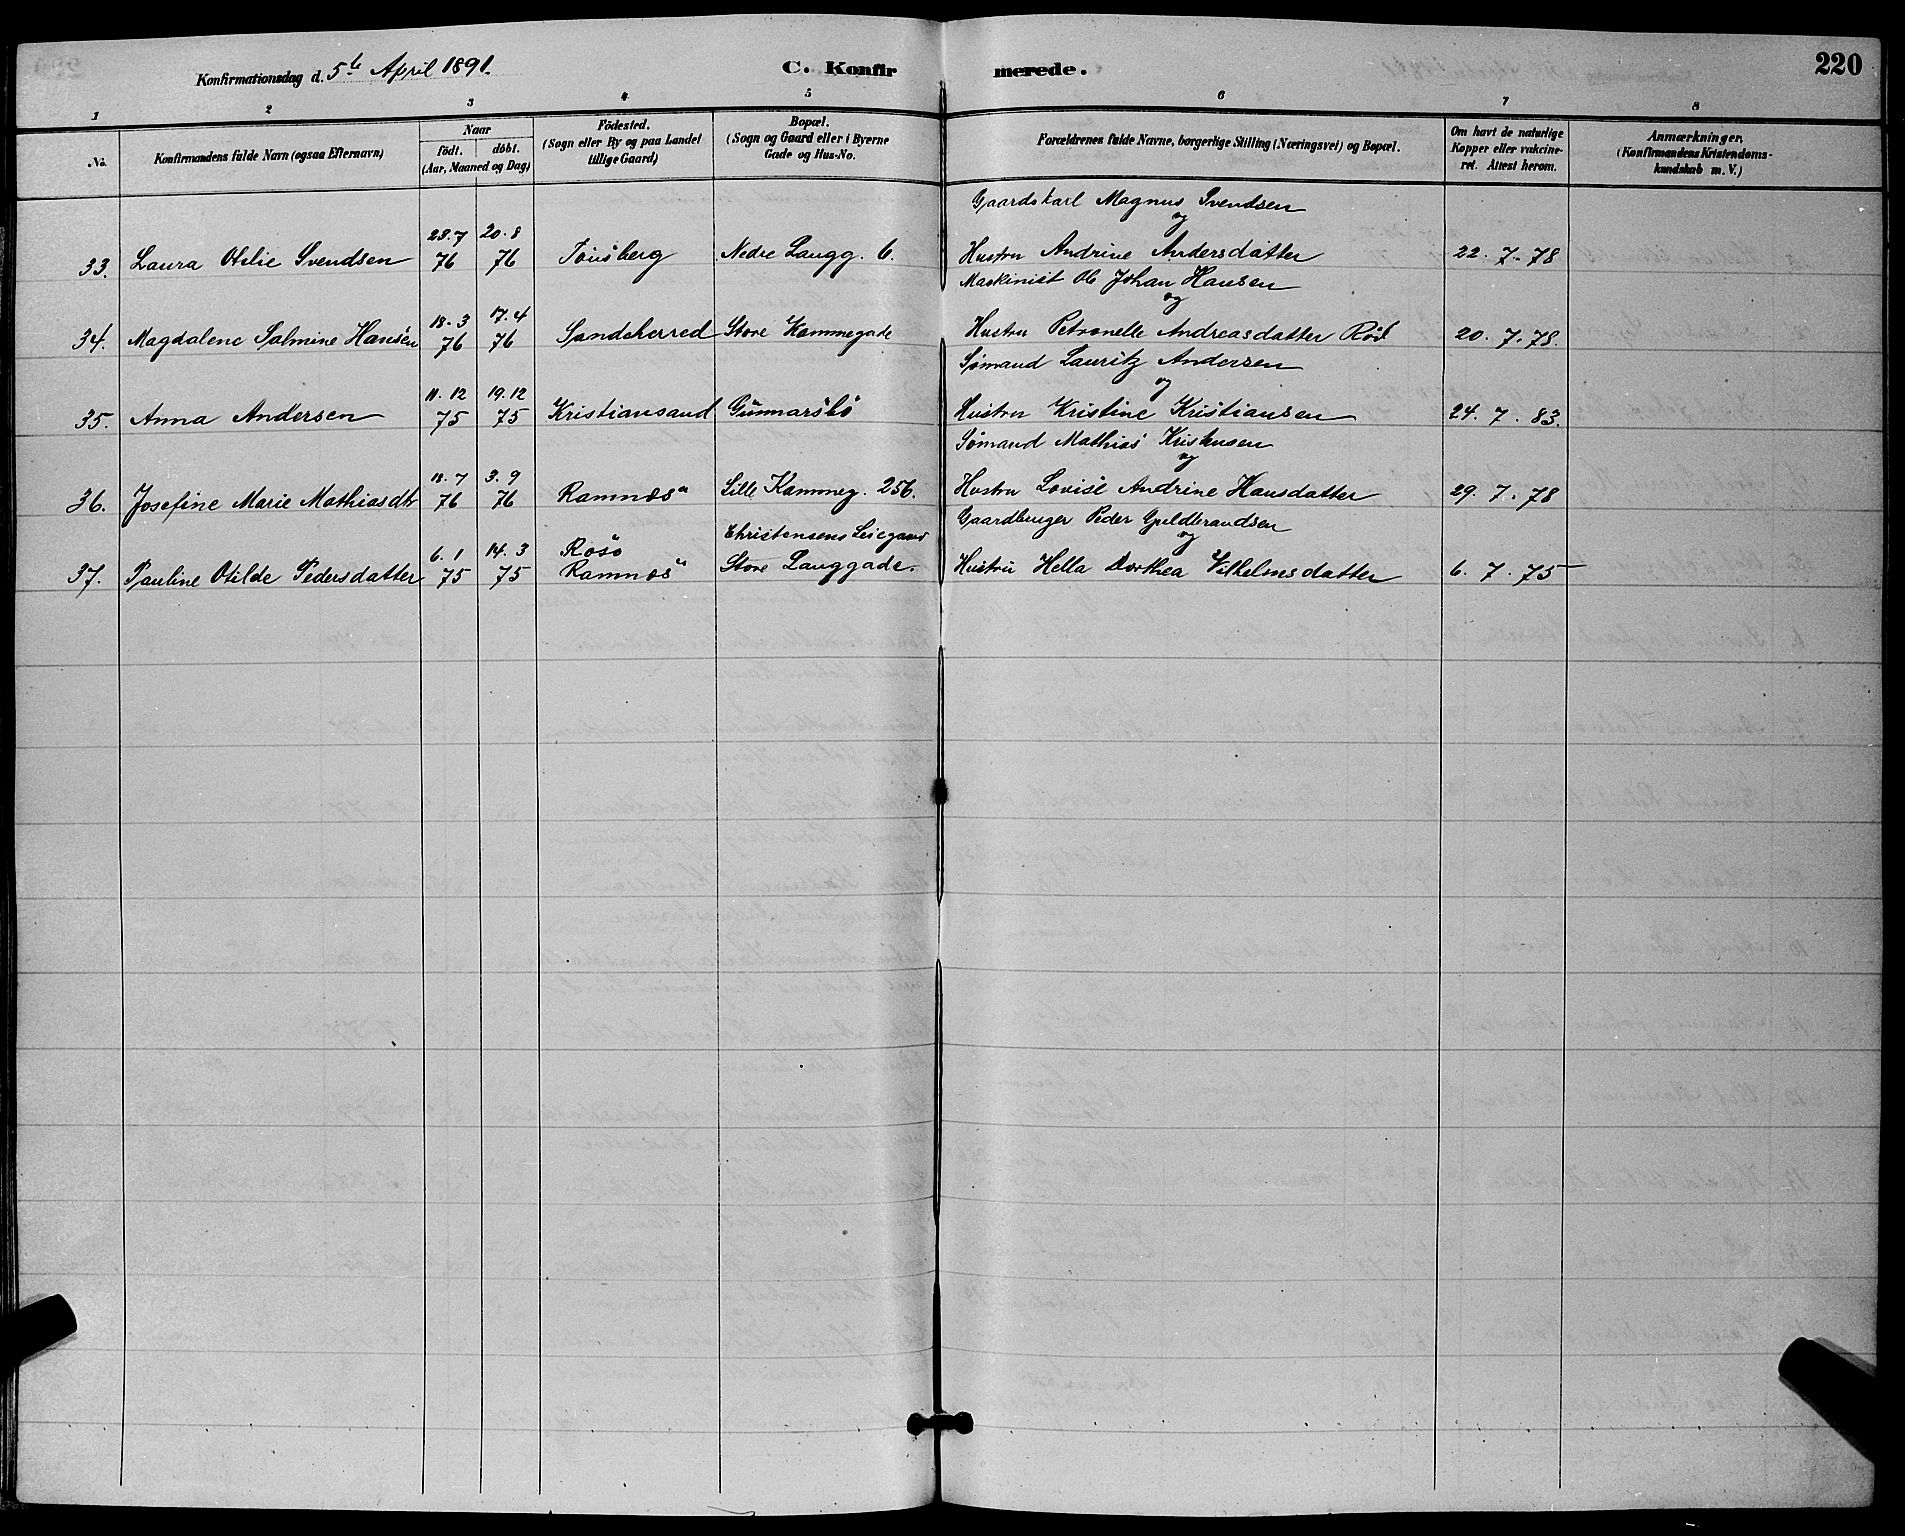 Konfirmationsdag d. 5te April 1891.
C. Konfirmerede.
220
1 2 3 4 5 6 7 8
No.
Konfirmandens fulde Navn (ogsaa Efternavn)
Naar
født. døbt.
(Aar, Maaned og Dag)
Fødested.
(Sogn eller By og paa Landet
tillige Gaard)
Bopæl.
(Sogn og Gaard eller i Byerne
Gade og Hus-No.
Forældrenes fulde Navne, borgerlige Stilling (Næringsvei) og Bopæl.
Om havt de naturlige
Kopper eller vakcine-
ret. Attest herom.
Anmærkninger,
(Konfirmandens Kristendoms-
kundskab m. V.)
Gaardskarl Magnus Svendsen
og
28.7 20.8
33. Laura Otilie Svendsen 76 76 Tønsberg Nedre Langg. 6. Hustru Andrine Andersdatter 22. 7. 78
Maskinist Ole Johan Hansen
og
18.3 17.4
34. Magdalene Salmine Hansen 76 76 Sandeherred Store Kammegade Hustru Petronelle Andreasdatter Röd 20. 7. 78.
Sømand Lauritz Andersen
og
11.12 19.12
35. Anna Andersen 75 75 Kristiansand Gunnarsbø Hustru Kristine Kristiansen 24. 7. 83.
Sømand Mathias
og
18.7 3.9
36. Josefine Marie Mathiasdtr 76 76 Ramnæs Lille Kammeg. 256. Hustru Lovise Andrine Hansdatter 29. 7. 78
Christensens Leiegaard Gaardbruger Peder Guldbrandsen
og
6.1 14.3 Røsø
37. Pauline Otilde Pedersdatter 75 75 Ramnæs Store Langgade. Hustru Hella Dorthea Vilhelmsdatter 6. 7. 75